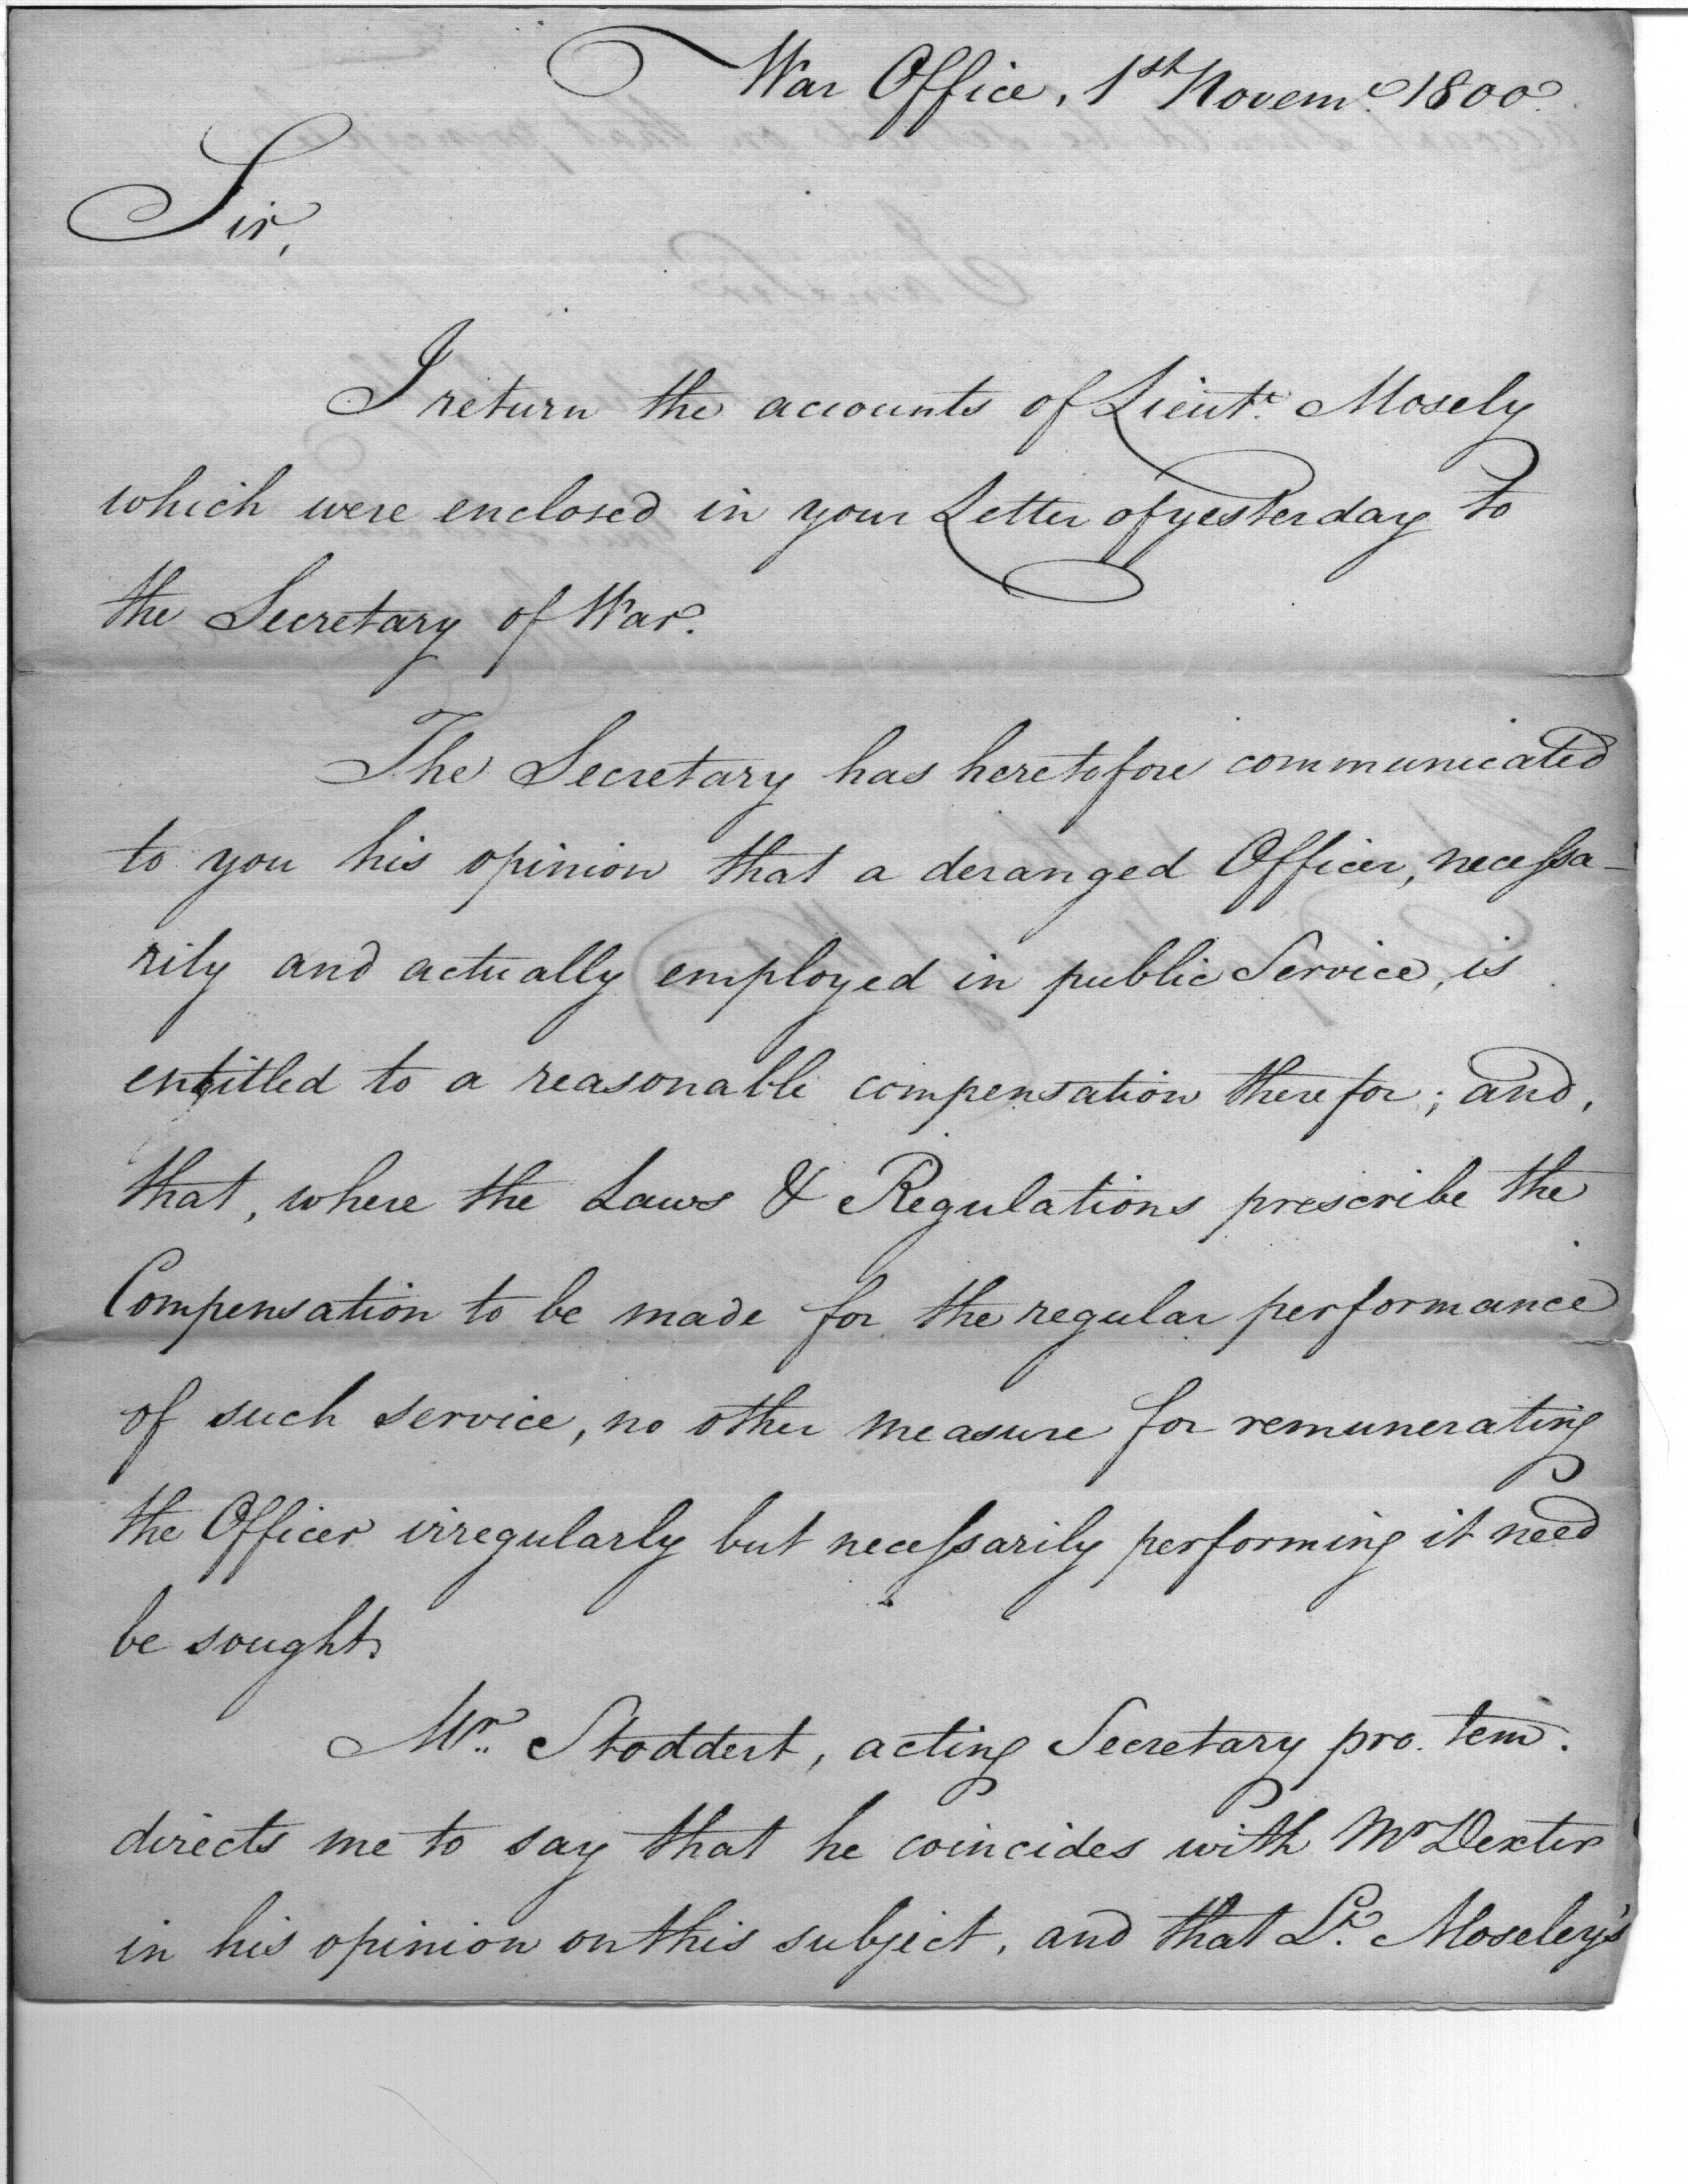 War Office, 1st Novemr. 1800.
Sir,
I return the accounts of Lieut. Mosely
which were enclosed in your Letter of yesterday to
the Secretary of War.
The Secretary has heretofore communicated
to you his opinion that a deranged Officer, necessa-
rily and actually employed in public Service, is
entitled to a reasonable compensation therefor; and,
that, where the Laws & Regulations prescribe the
Compensation to be made for the regular performance
of such service, no other measure for remunerating
the Officer irregularly but necessarily performing it need
be sought.
Mr. Stoddert, acting Secretary pro. tem.
directs me to say that he coincides with Mr Dexter
in his opinion on this subject, and that Lt. Moseley's